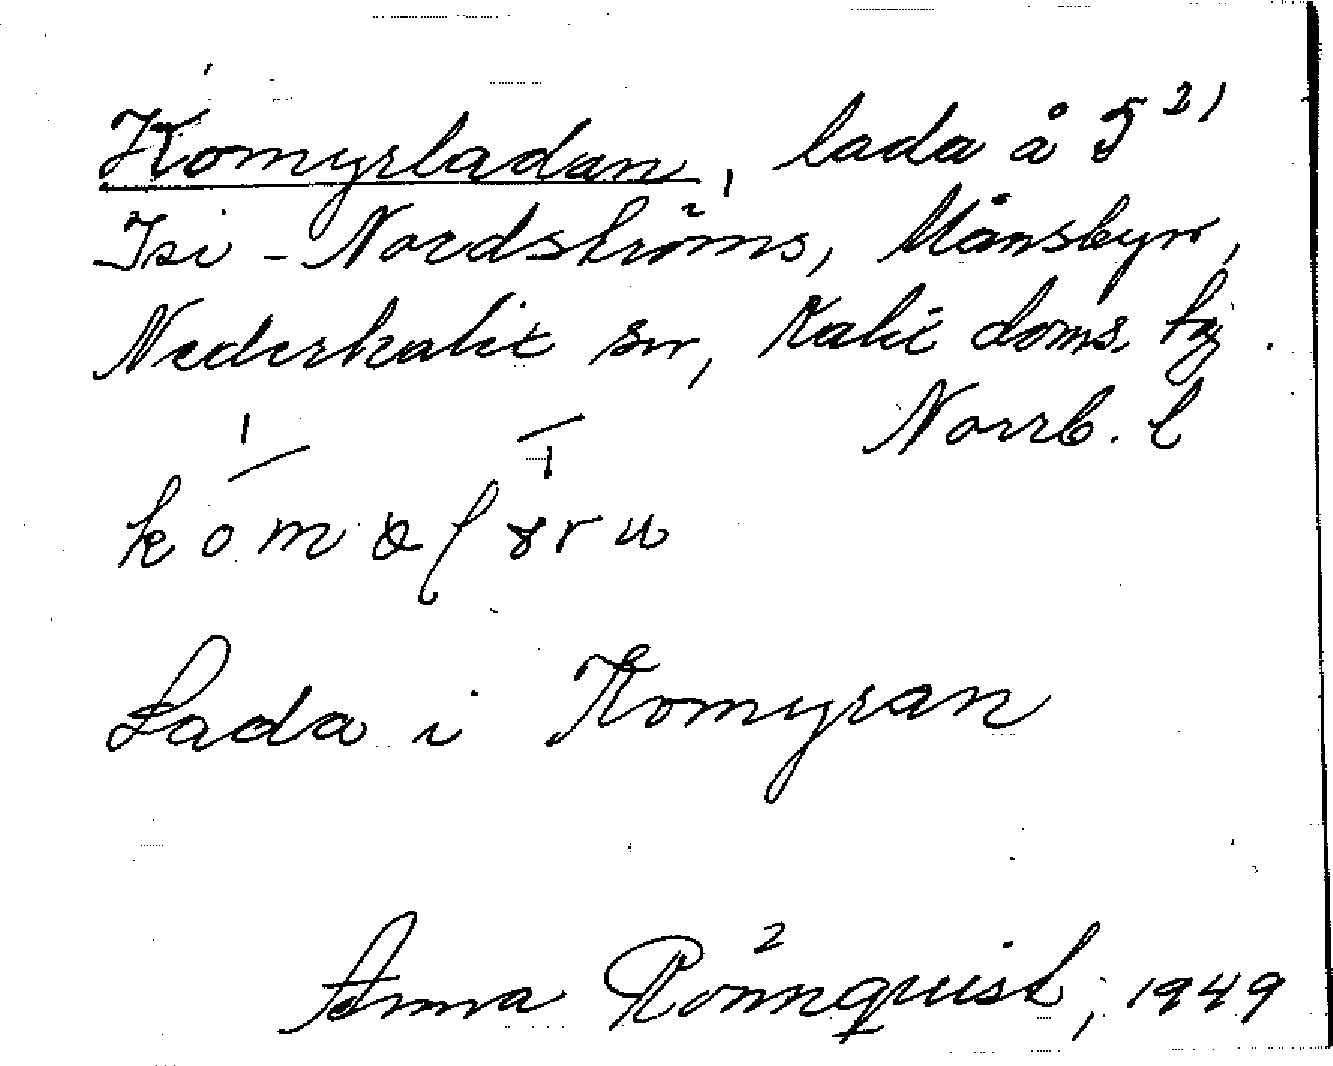 Komyrladan, lada å 5²⁾
Isi-Nordströms, Månsbyn,
Nederkalix sn, Kalix doms. tg.
Norrb. l
Lada i Komyran
Anna Rönnquist, 1949